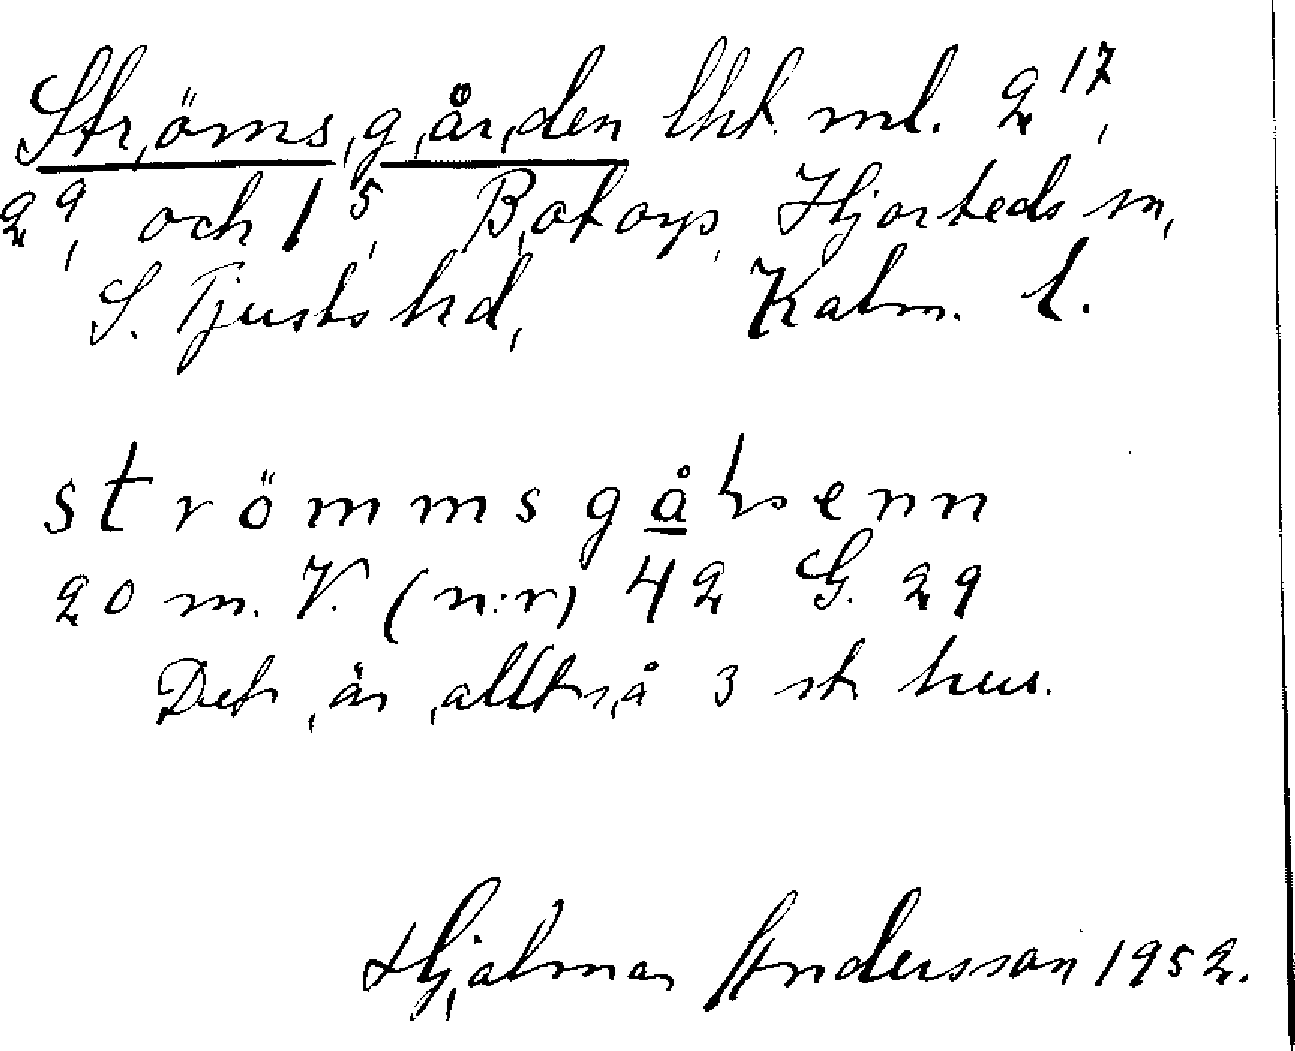 Strömsgården lht. ml. 2¹⁷,
2⁹, och 1⁵, Botorp, Hjorteds sn,
S. Tjusts hd, Kalm. l.
strömmsgåhsenn
20 m. V. (n:r) 42 G. 29
Det är alltså 3 st hus.
Hjalmar Andersson 1952.